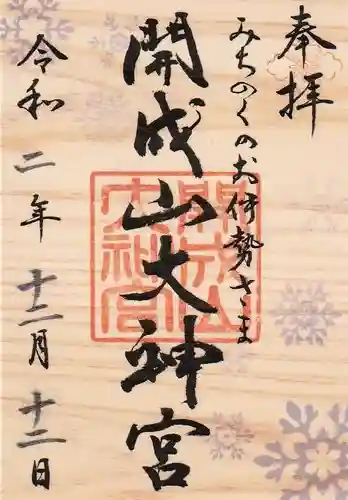 奉拝
みちのくのお伊勢さま
開成山大神宮
令和二年十二月十二日
開成山
大神宮